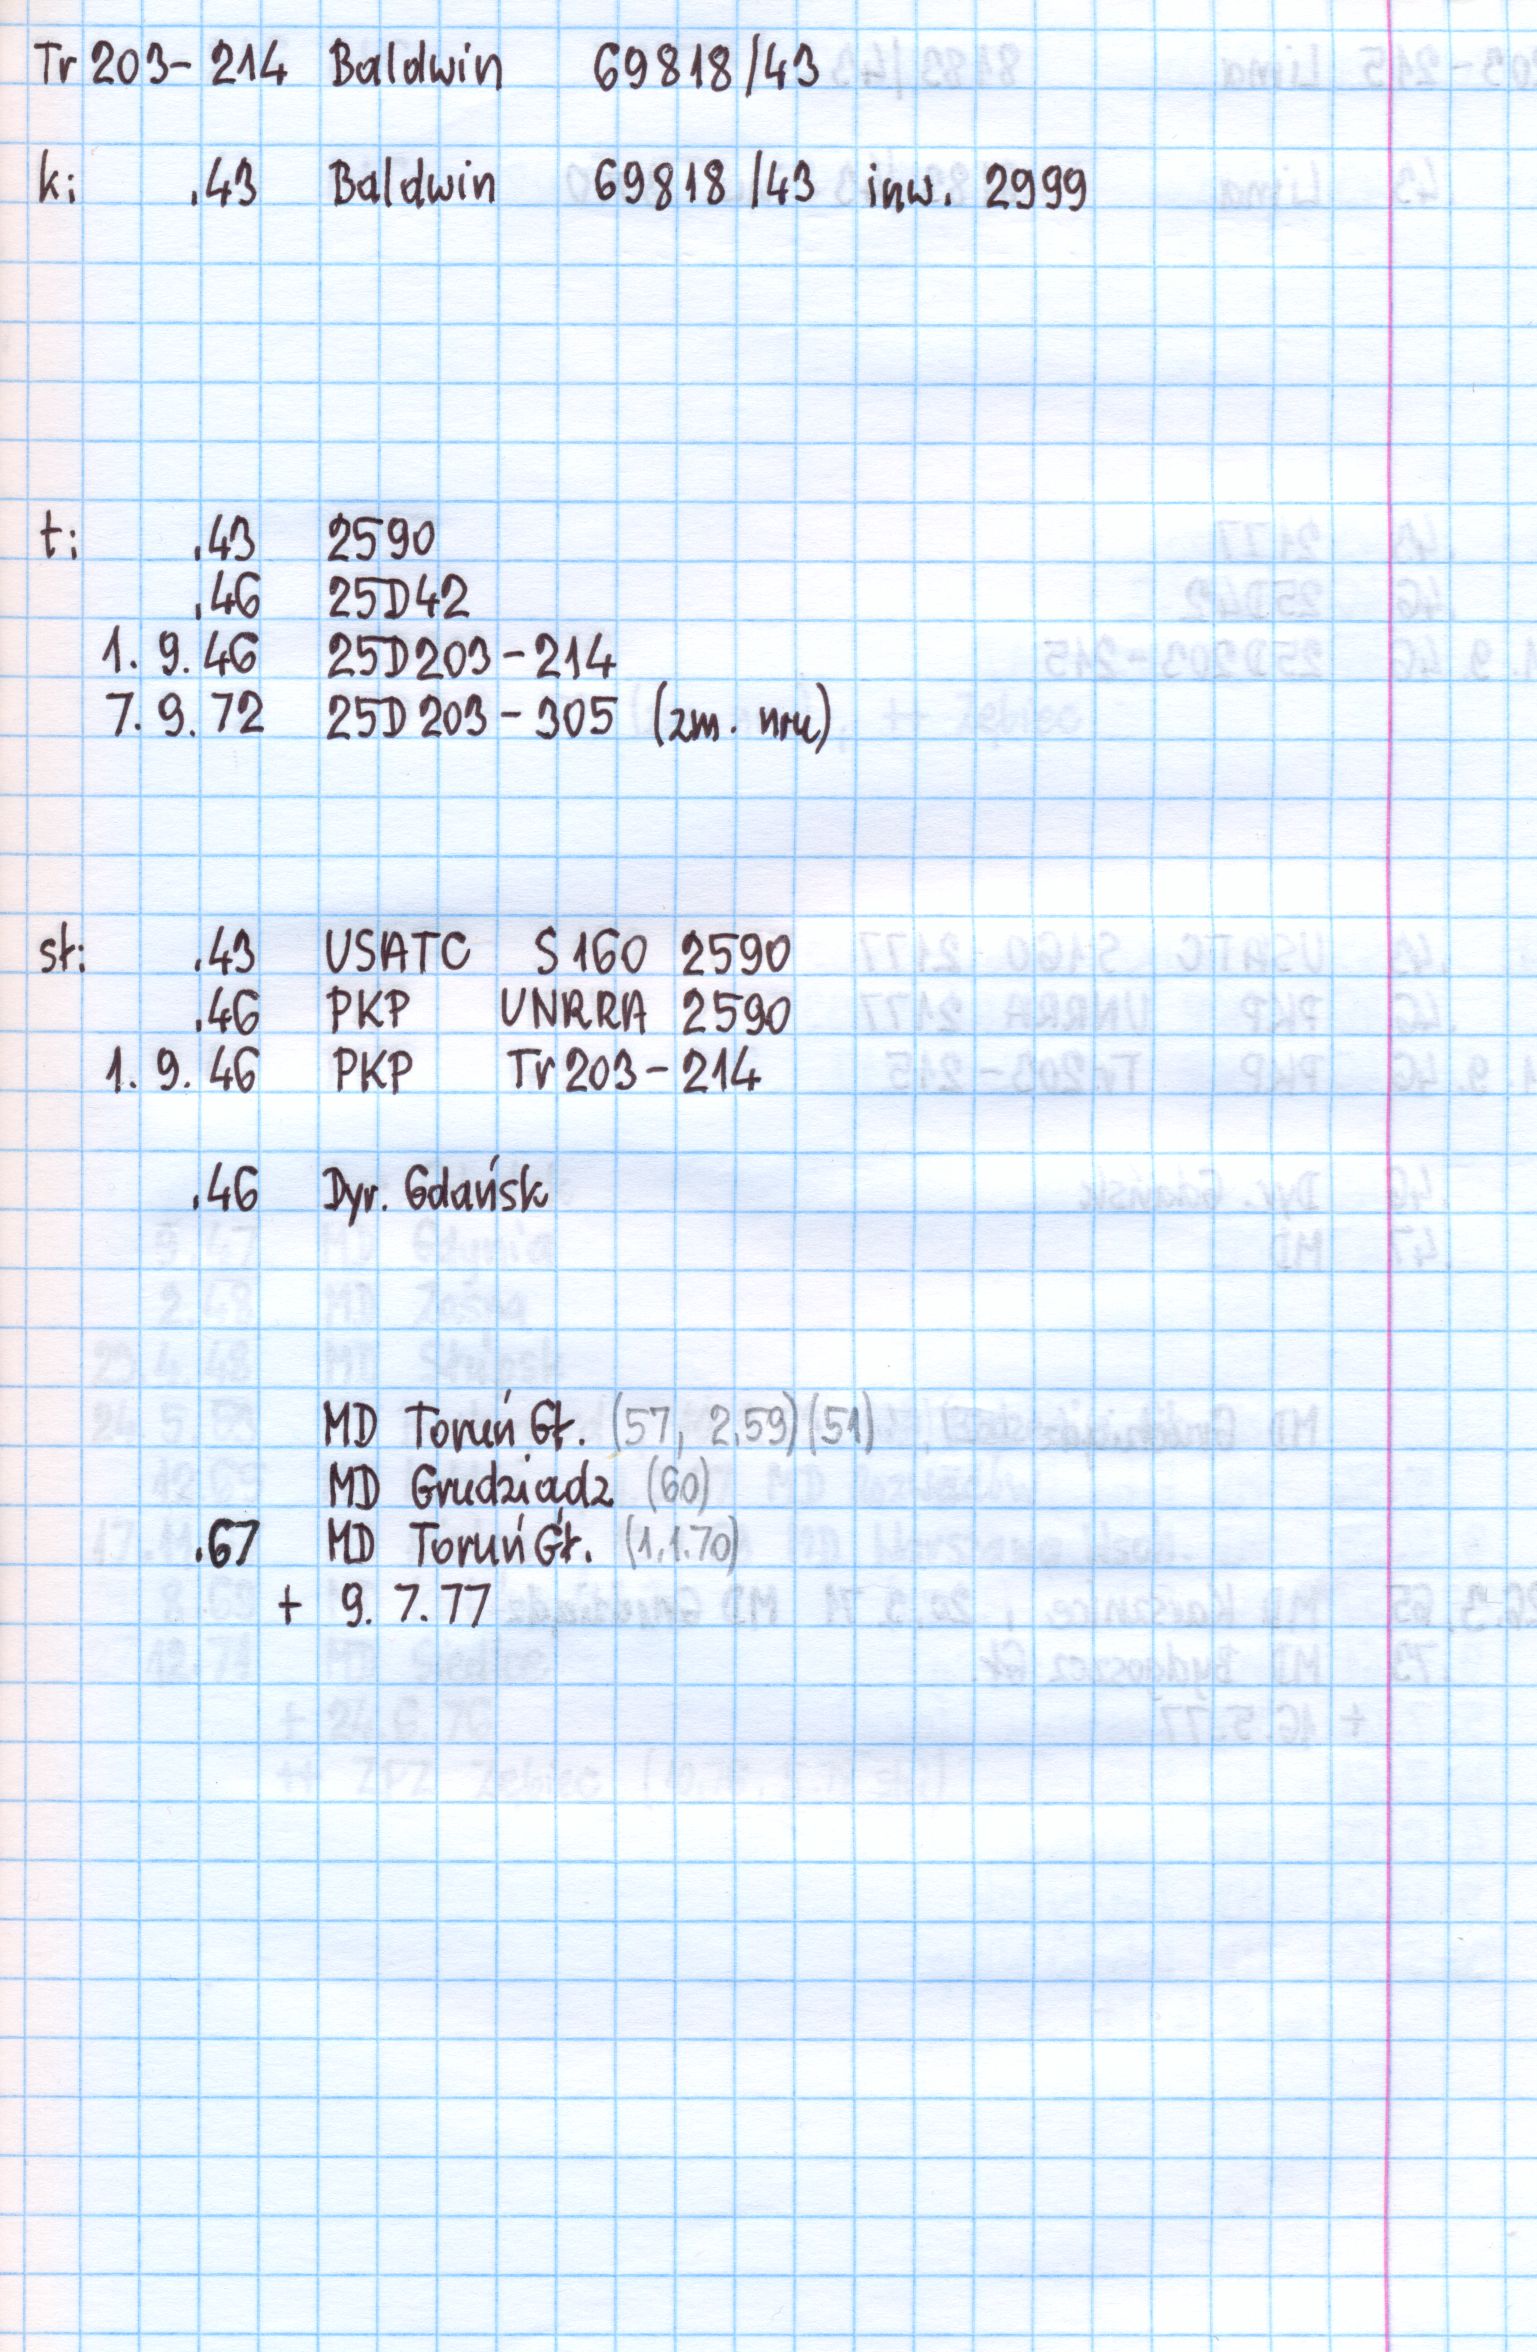 Tr 203-214 Baldwin 69818/43
k: .43 Baldwin 69818/43 inw. 2999
t: .43 2590
.46 25D42
1. 9. 46 25D203-214
7. 9. 72 25D203-305 (zm. nru)
st: .43 USATC S160 2590
.46 PKP UNRRA 2590
1. 9. 46 PKP Tr 203-214
.46 Dyr. Gdańsk
MD Toruń Gł. (57, 2.59) (51)
MD Grudziądz (60)
.67 MD Toruń Gł. (1.1.70)
+ 9. 7. 77